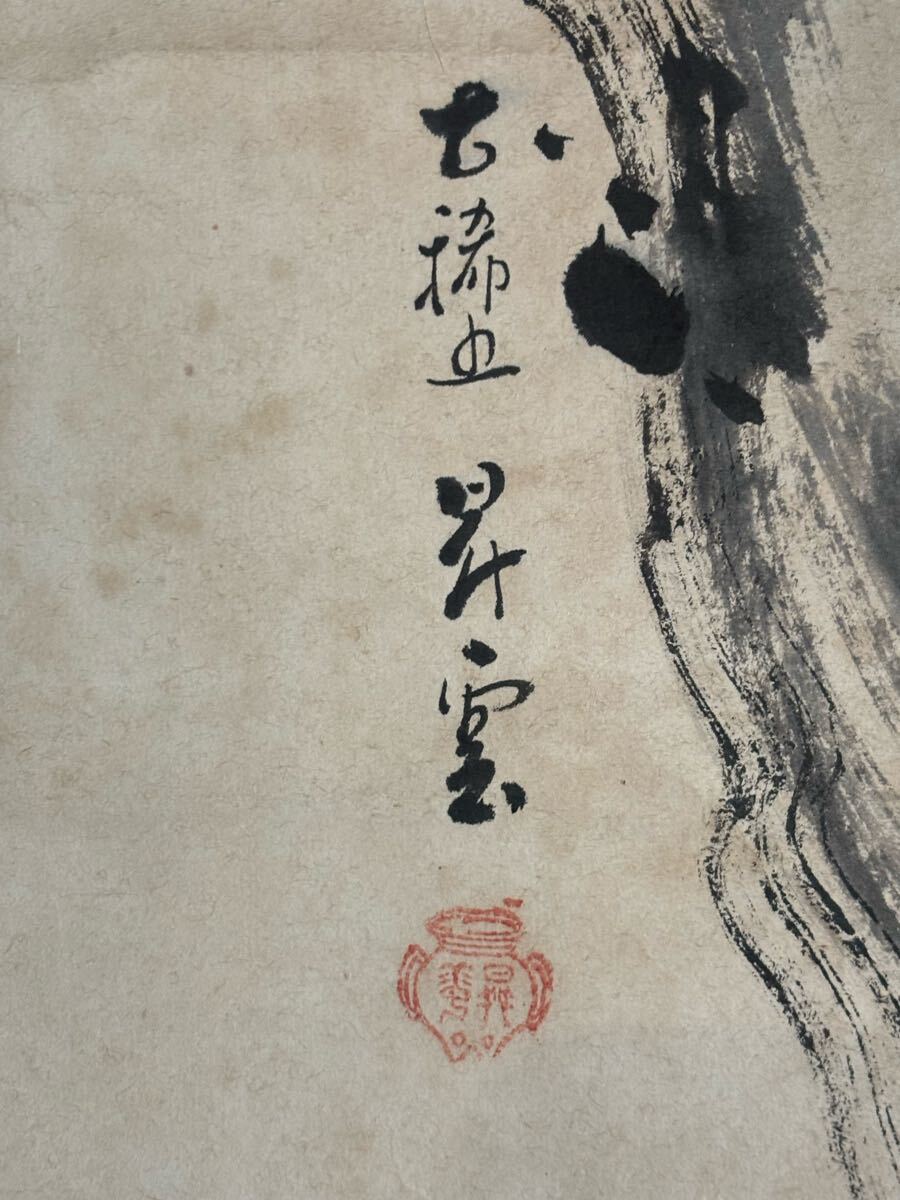 古稀五 昇雲
昇雲